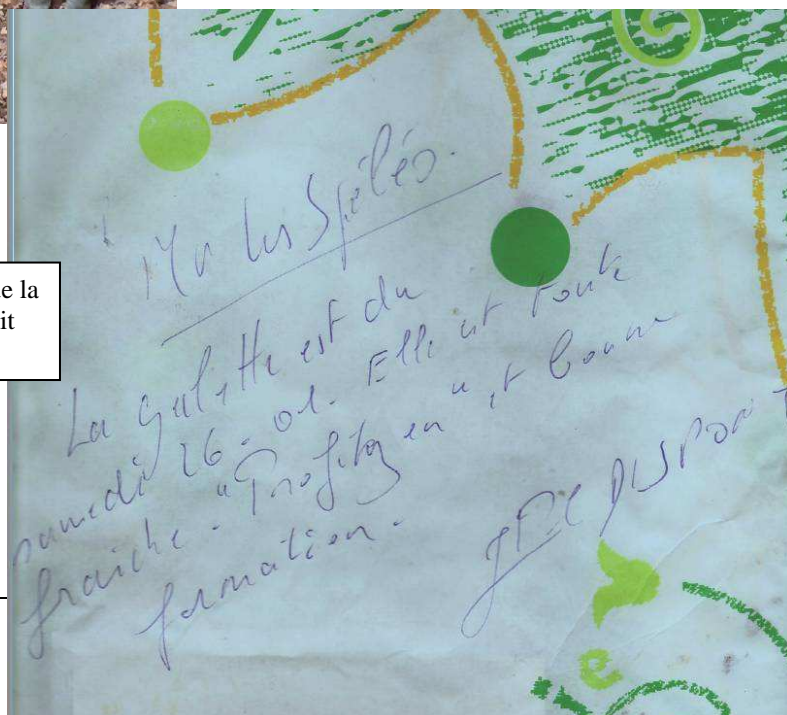 e la
it
les Spéléo.
La galette est du
samedi 26-01. Elle est toute
fraiche. "Profitez en" et bonne
formation.